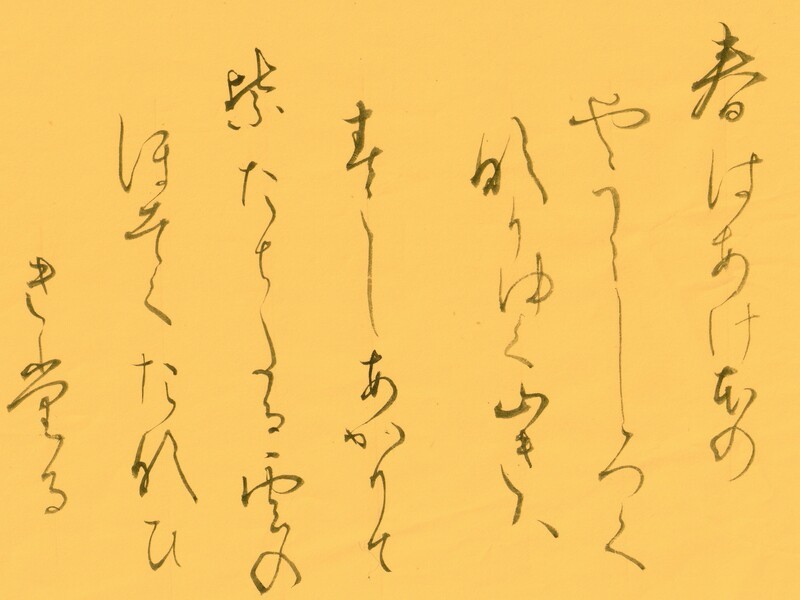 春はあけほの
やう〳〵しろく
なりゆく山きは
すこしあかりて
紫たちたる雲の
ほそくたなひ
きたる